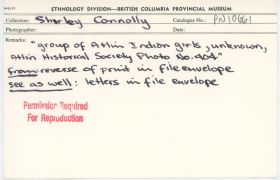 ETHNOLOGY DIVISION—BRITISH COLUMBIA PROVINCIAL MUSEUM
Collection: Shirley Connolly Catalogue No.: PN10661
Photographer: Date:
Remarks:
"group of Atlin Indian girls, unknown,
Atlin Historical Society Photo No. 404"
from reverse of print in file envelope
see as well: letters in file envelope
Permission Required
For Reproduction